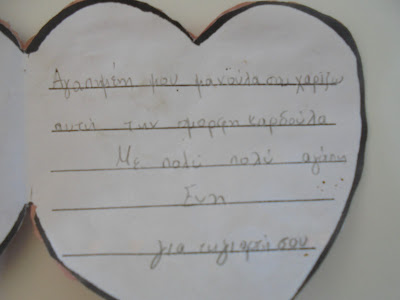 Αγαπημένη μου μανούλα σου χαρίζω
αυτή την όμορφη καρδούλα
Με πολύ πολύ αγάπη
Εύη
για τη γιορτή σου